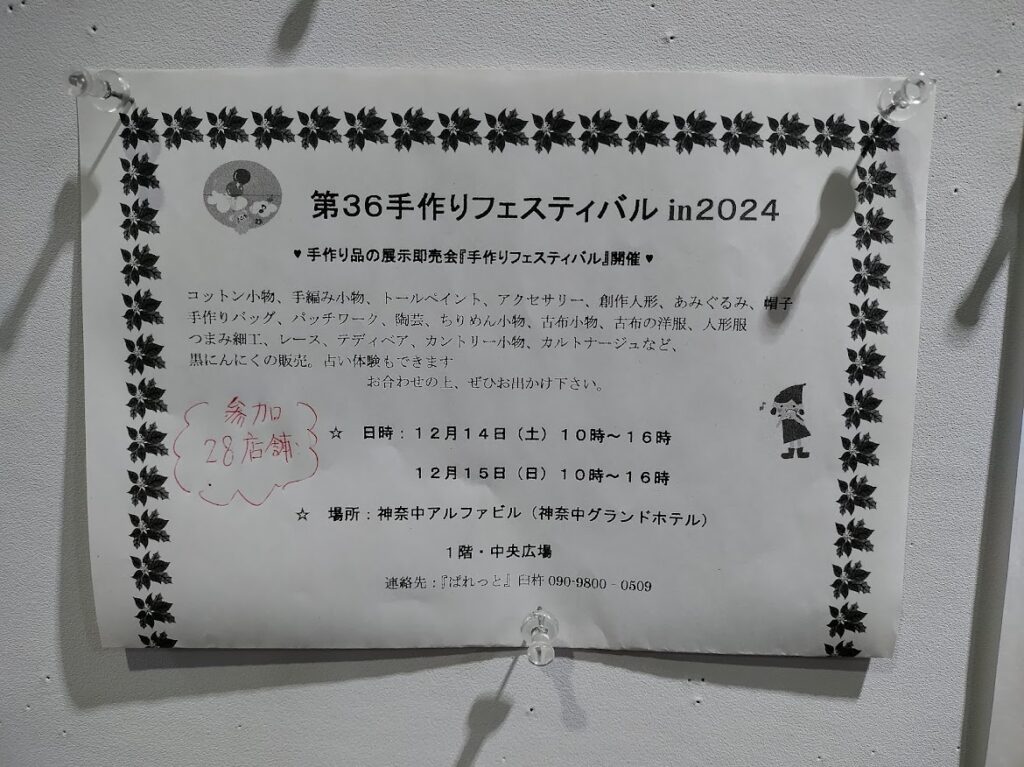 第36手作りフェスティバル in2024
♥ 手作り品の展示即売会『手作りフェスティバル』開催 ♥
コットン小物、手編み小物、トールペイント、アクセサリー、創作人形、あみぐるみ、帽子
手作りバッグ、パッチワーク、陶芸、ちりめん小物、古布小物、古布の洋服、人形服
つまみ細工、レース、テディベア、カントリー小物、カルトナージュなど、
黒にんにくの販売。占い体験もできます
お合わせの上、ぜひお出かけ下さい。
参加
28店舗
☆ 日時：12月14日（土）10時～16時
12月15日（日）10時～16時
☆ 場所：神奈中アルファビル（神奈中グランドホテル）
1階・中央広場
連絡先：『ぱれっと』臼杵 090-9800‐0509